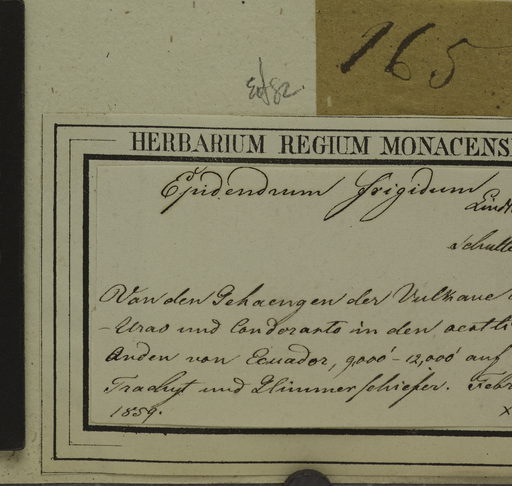 165
HERBARIUM REGIUM MONACENS
Epidendrum frigidum
Lindl
Schulte
Von den Gehaengen der Vulkane
-Urco und Condorasto in den oestli
Anden von Ecuador, 9,000'-12,000' auf
Trachyt und Glimmerschiefer. Febr
1859. x